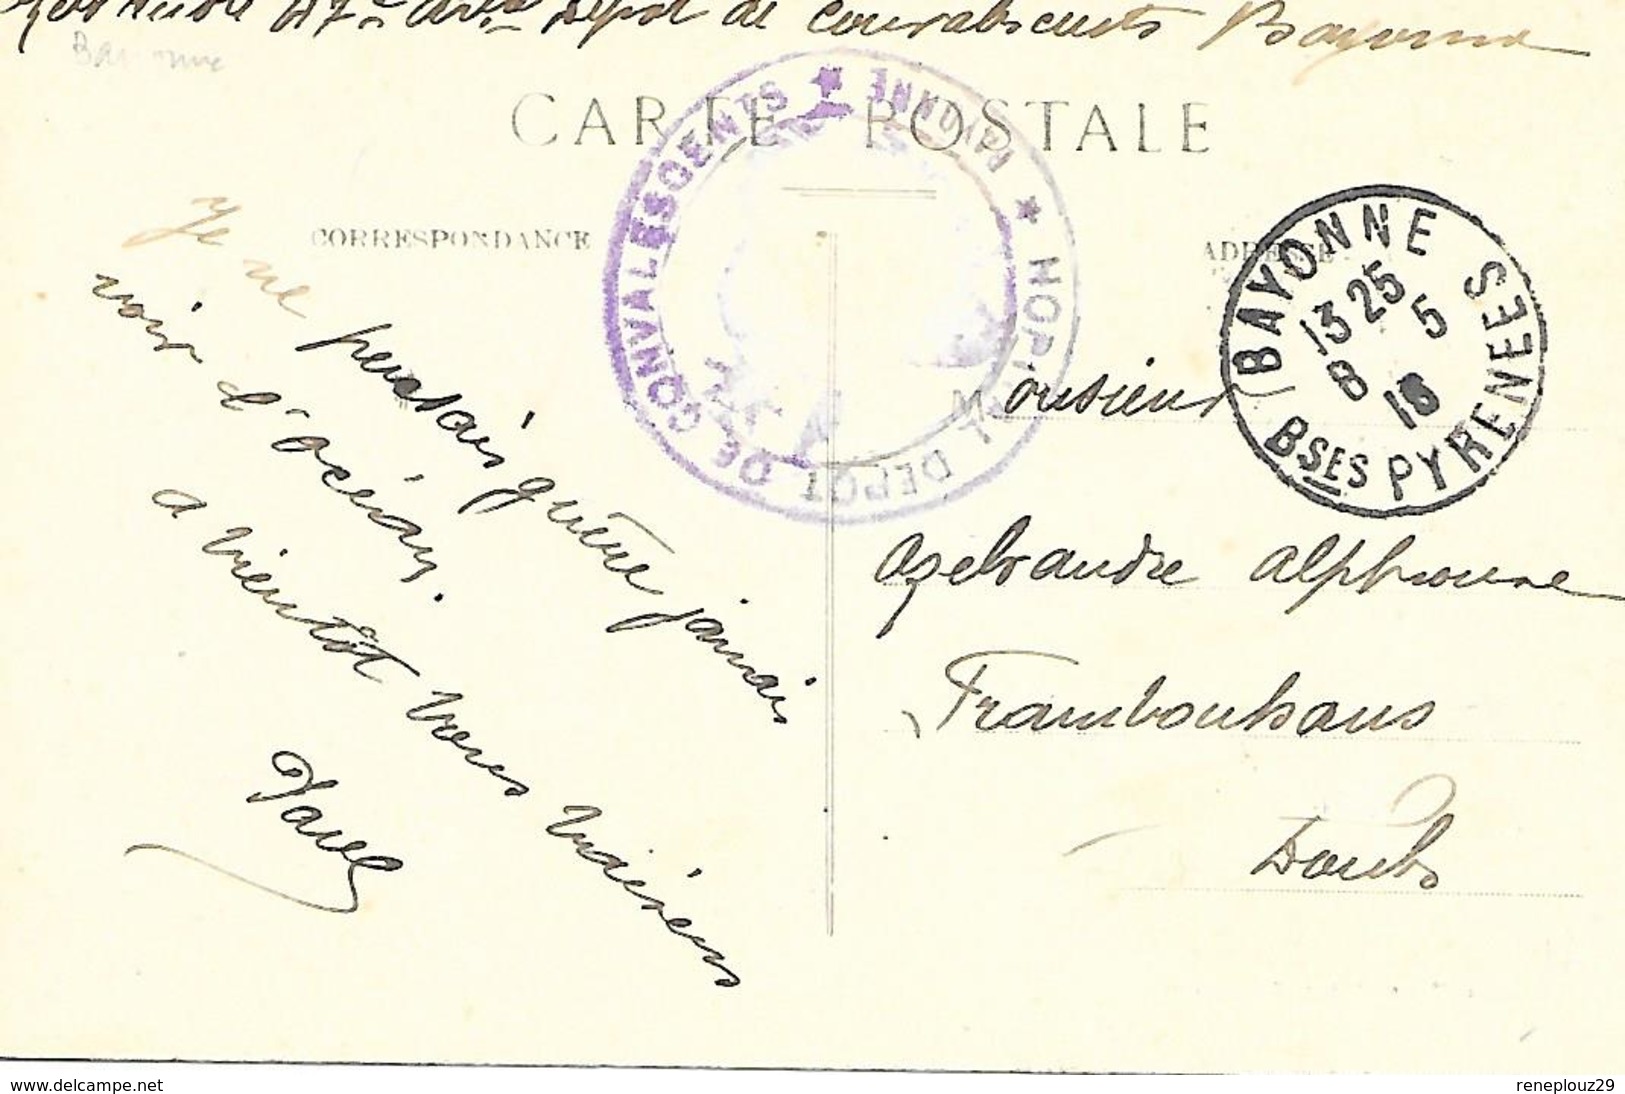 47e Artie Dépot de convalescents Bayonne
Bayonne
CARTE POSTALE
CORRESPONDANCE
ADRESSE
HOPITAL DEPOT DE CONVALESCENTS ★ BAYONNE ★
BAYONNE
13 25
8 5
16
BSES PYRENEES
Je ne pensais guère jamais
voir l'océan.
a bientôt vous
Paul
Monsieur
Alphonse
Frambouhans
Doubs
delcampe.net
reneplouz29